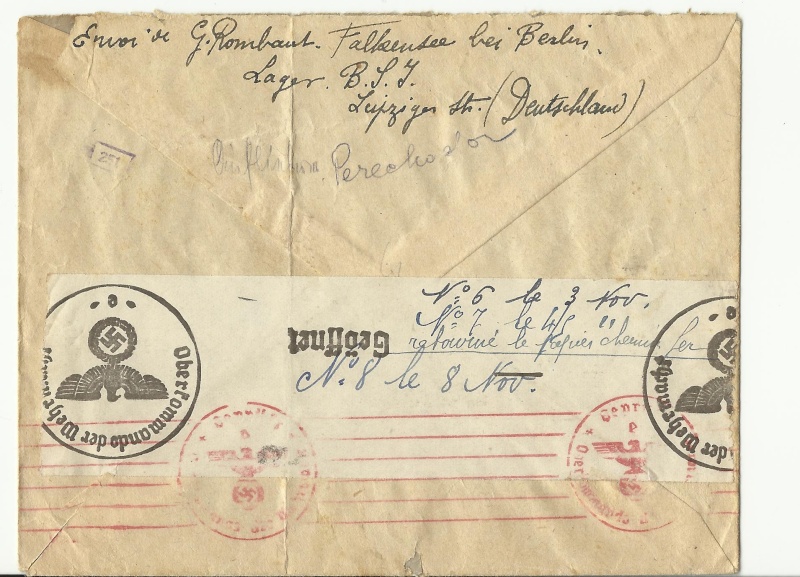 Envoi de G. Rombaut. Falkensee bei Berlin.
Lager. B.S.I.
Leipziger Str. (Deutschland)
251
N° 6 le 3 Nov.
N° 7 le 4/5 "
retourné le papier chemin fer
Geöffnet
N° 8 le 8 Nov.
e
Oberkommando der Wehrmacht
Geprüft
Oberkommando der Wehrmacht